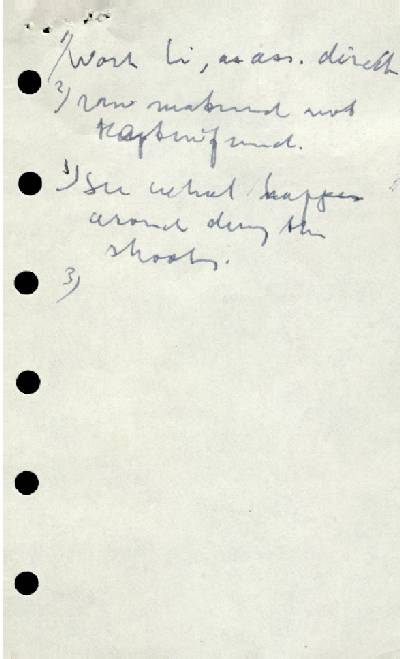 1) Work Li, as ass. direct
2) raw material not
1) See what happen
around during the
shooting.
3)